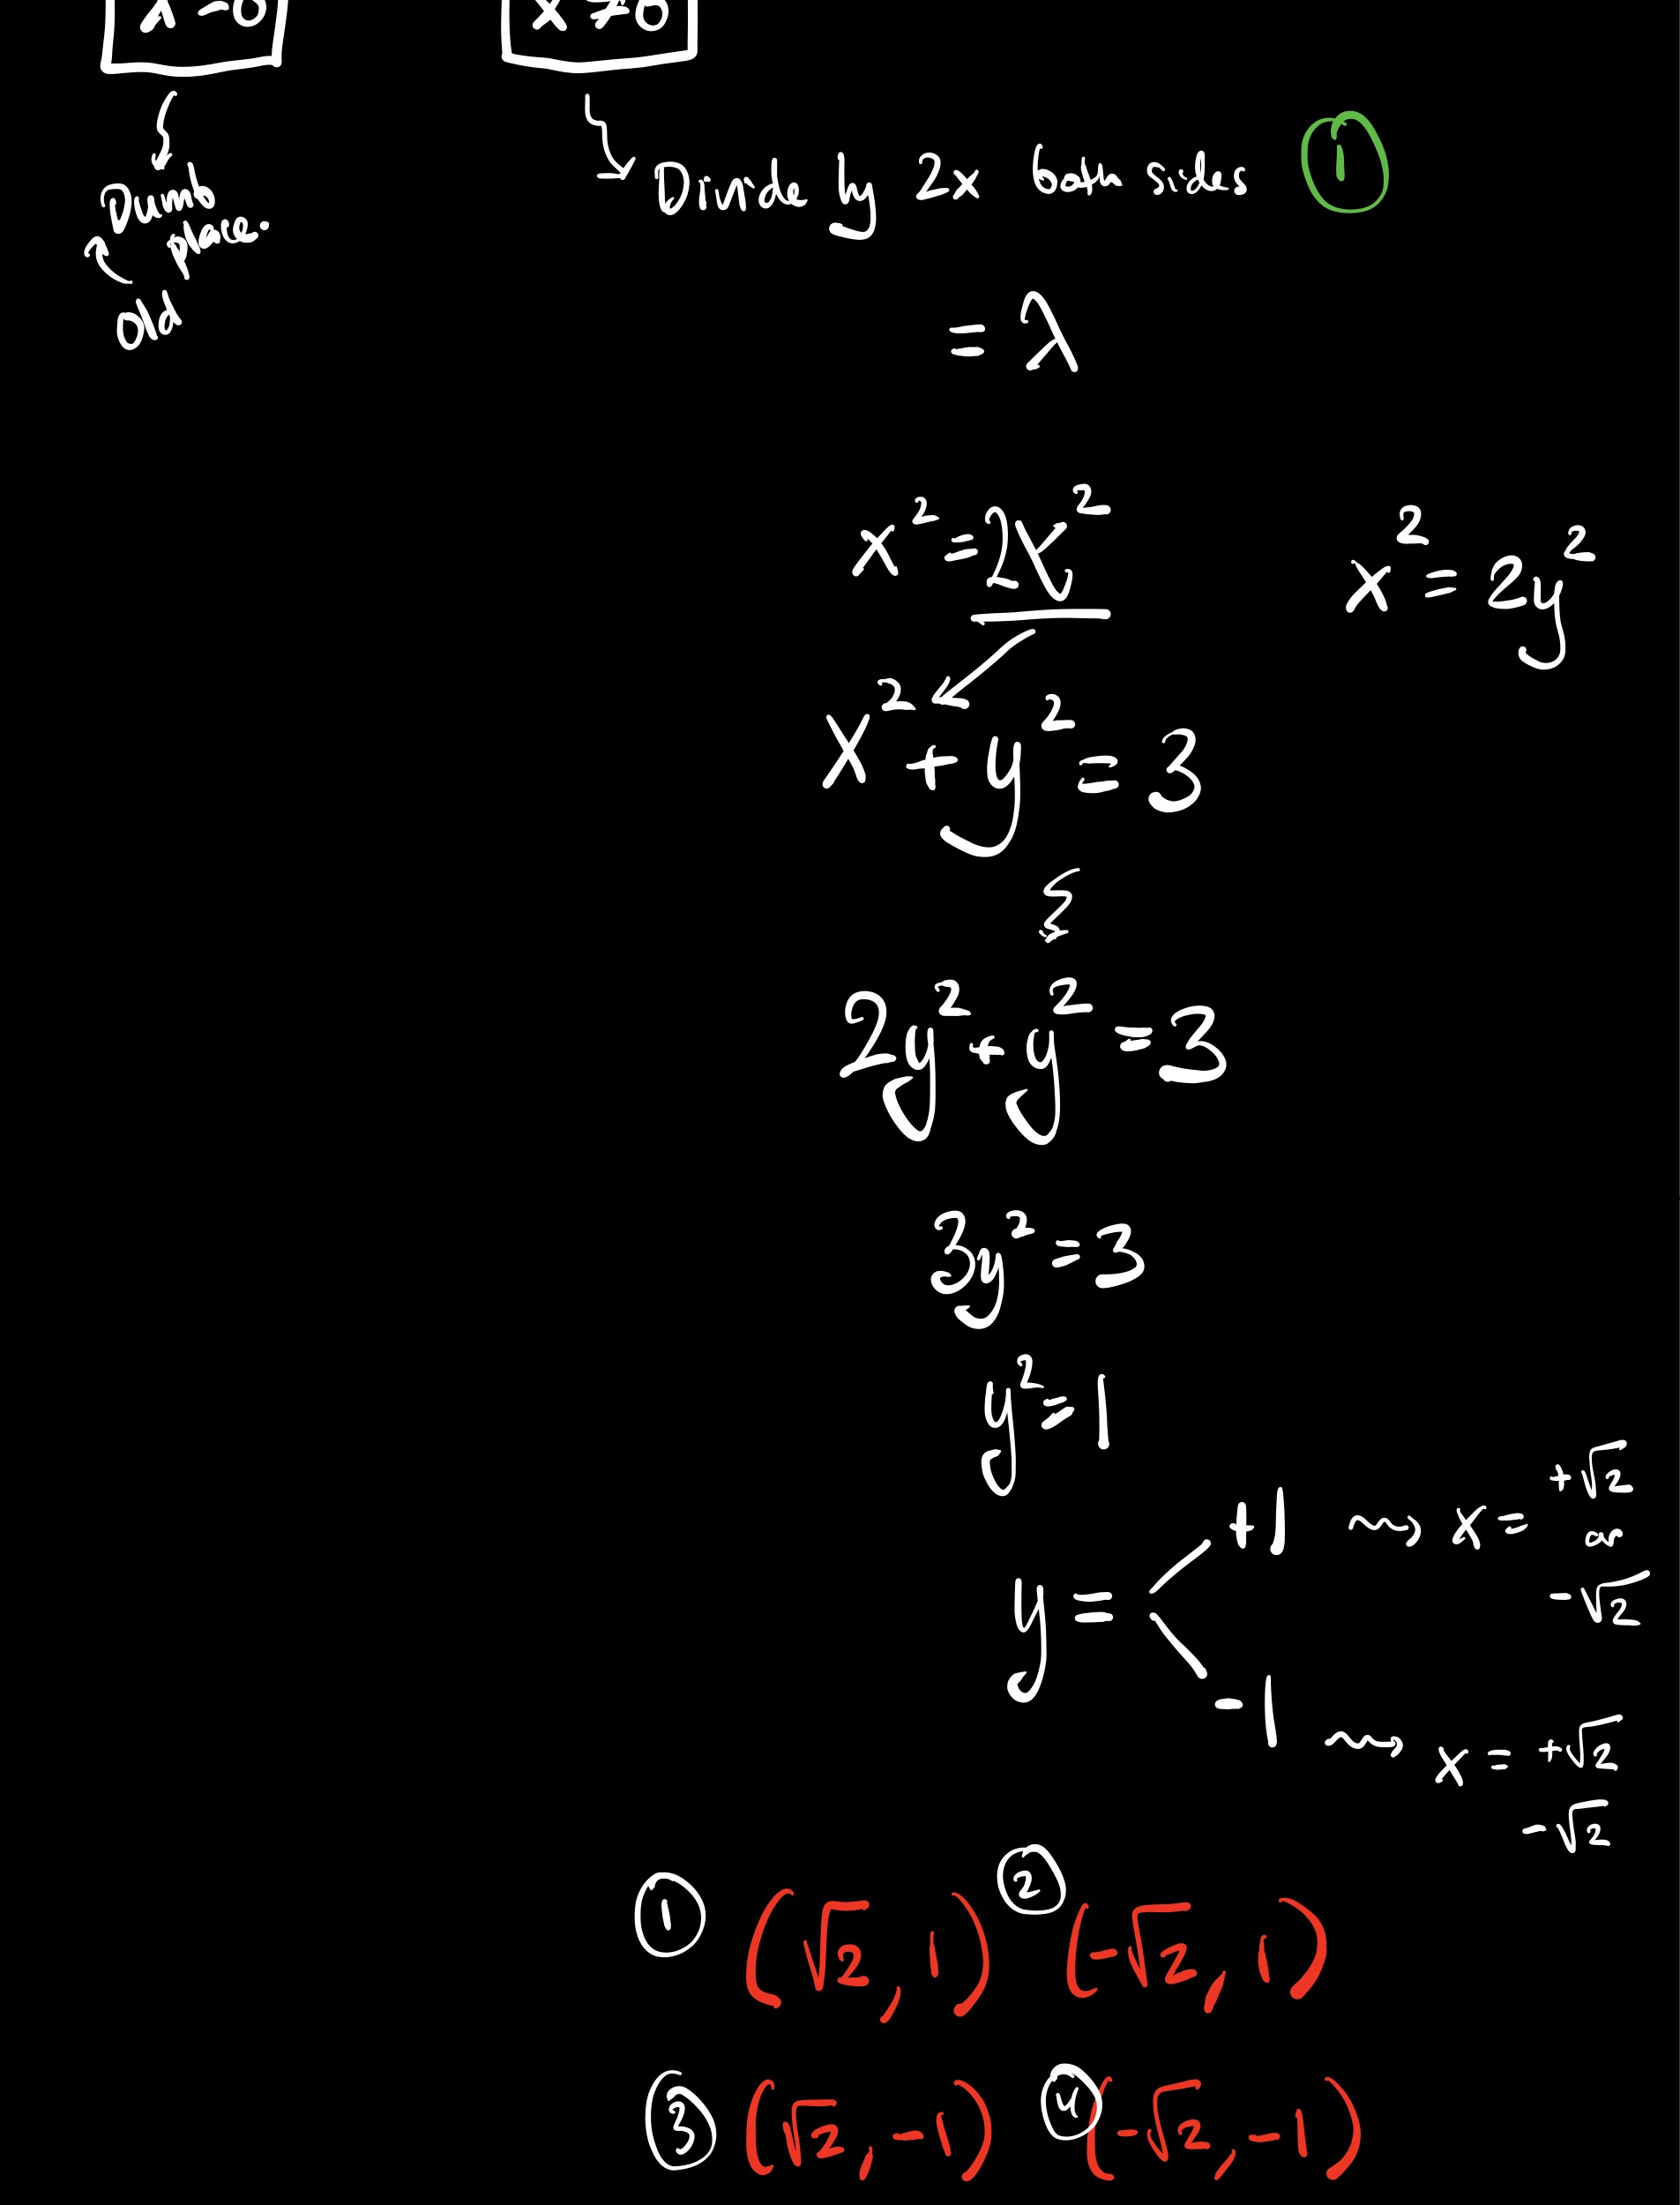 x = 0
x ≠ 0
Dumb place.
Old
Divide by 2x both sides ①
= λ
x² = 2λ²
x² = 2y²
x² + y² = 3
2y² + y² = 3
3y² = 3
y² = 1
y =
+1 ⇝ x = +√2
or
-√2
-1 ⇝ x = +√2
-√2
① (√2, 1) ② (-√2, 1)
③ (√2, -1) ④ (-√2, -1)